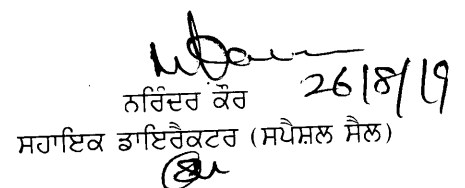 26/8/19
ਨਰਿੰਦਰ ਕੌਰ
ਸਹਾਇਕ ਡਾਇਰੈਕਟਰ (ਸਪੈਸ਼ਲ ਸੈਲ)